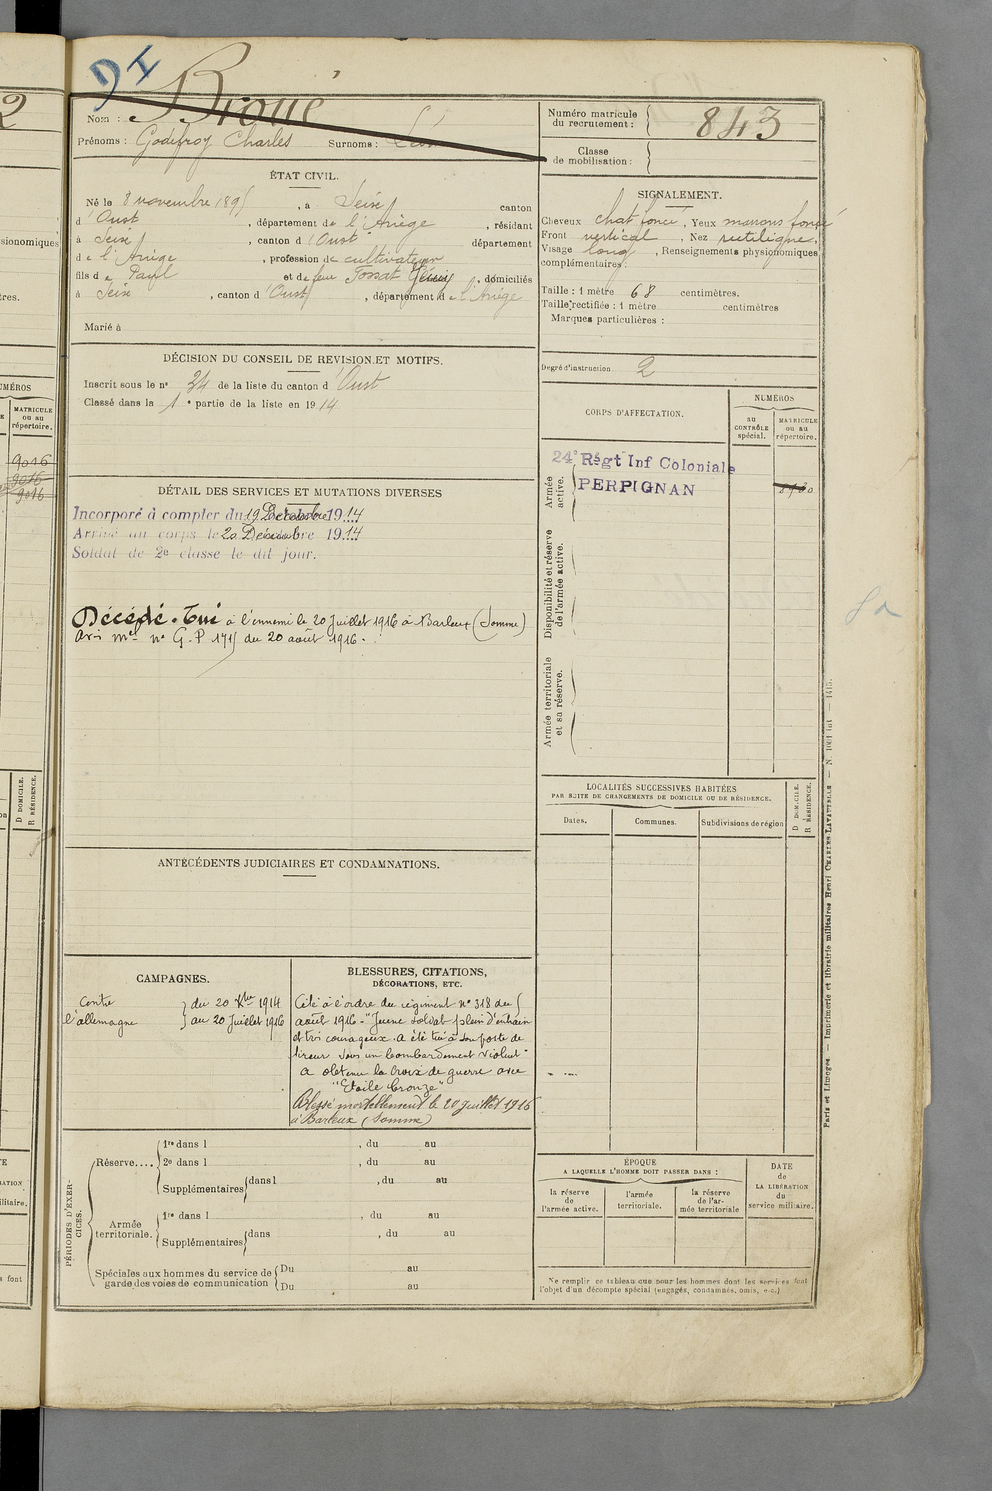 DI
Nom : Broué
Prénoms : Godefroy Charles Surnoms : Léon
Numéro matricule du recrutement : 843
Classe de mobilisation :
ÉTAT CIVIL.
Né le 8 novembre 1895, à Seix canton
d'Oust, département de l'Ariège, résidant
à Seix, canton d'Oust département
de l'Ariège, profession de cultivateur
fils de Paul et de feu Tossat, domiciliés
à Seix, canton d'Oust, département de l'Ariège
Marié à
SIGNALEMENT.
Cheveux chat foncé, Yeux marrons foncé
Front vertical, Nez rectiligne.
Visage long, Renseignements physionomiques
complémentaires:
Taille : 1 mètre 68 centimètres.
Taille rectifiée : 1 mètre centimètres
Marques particulières :
Degré d'instruction 2
DÉCISION DU CONSEIL DE REVISION ET MOTIFS.
Inscrit sous le nº 34 de la liste du canton d'Oust
Classé dans la 1e partie de la liste en 1914
CORPS D'AFFECTATION.
NUMÉROS
au CONTRÔLE spécial.
MATRICULE ou au répertoire.
Armée active.
24e Régt Inf Coloniale
PERPIGNAN
Disponibilité et réserve de l'armée active.
Armée territoriale et sa réserve.
DÉTAIL DES SERVICES ET MUTATIONS DIVERSES
Incorporé à compter du 19 Décembre 1914
Arrivé au corps le 20 Décembre 1914
Soldat de 2e classe le dit jour.
Décédé. Tué à l'ennemi le 20 Juillet 1916 à Barleux (Somme)
Avis mel nº G.P 1715 du 20 août 1916.
LOCALITÉS SUCCESSIVES HABITÉES
PAR SUITE DE CHANGEMENTS DE DOMICILE OU DE RÉSIDENCE.
Dates. Communes. Subdivisions de région
D DOMICILE.
R RÉSIDENCE.
ANTÉCÉDENTS JUDICIAIRES ET CONDAMNATIONS.
CAMPAGNES.
Contre du 20 Xbre 1914
l'allemagne au 20 Juillet 1916
BLESSURES, CITATIONS,
DÉCORATIONS, ETC.
Cité à l'ordre du régiment nº 318 du 5
août 1916 - "Jeune soldat plein d'entrain
et très courageux. A été tué à son poste de
tireur sous un bombardement violent"
a obtenu la Croix de guerre avec
"Etoile bronze"
Blessé mortellement le 20 juillet 1916
à Barleux (Somme)
PÉRIODES D'EXERCICES.
Réserve....
1re dans l , du au
2e dans l , du au
Supplémentaires dans l , du au
Armée territoriale.
1re dans l , du au
Supplémentaires dans , du au
Spéciales aux hommes du service de garde des voies de communication
Du au
Du au
ÉPOQUE
A LAQUELLE L'HOMME DOIT PASSER DANS :
la réserve de l'armée active.
l'armée territoriale.
la réserve de l'armée territoriale
DATE de LA LIBÉRATION du service militaire.
Ne remplir ce tableau que pour les hommes dont les services font
l'objet d'un décompte spécial (engagés, condamnés, omis, etc.)
Paris et Limoges. — Imprimerie et librairie militaires Henri CHARLES-LAVAUZELLE
2
sionomiques
NUMÉROS
MATRICULE ou au répertoire.
9016
9016
9016
D DOMICILE.
R RÉSIDENCE.